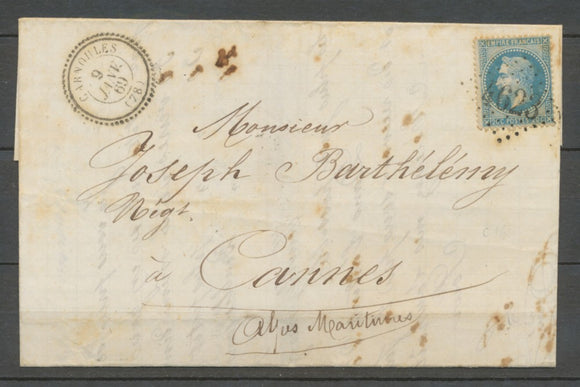 CARNOULES
9
JANV
69
(78)
EMPIRE FRANÇAIS
Monsieur
Joseph Barthélémy
Négt.
à Cannes
Alpes Maritimes